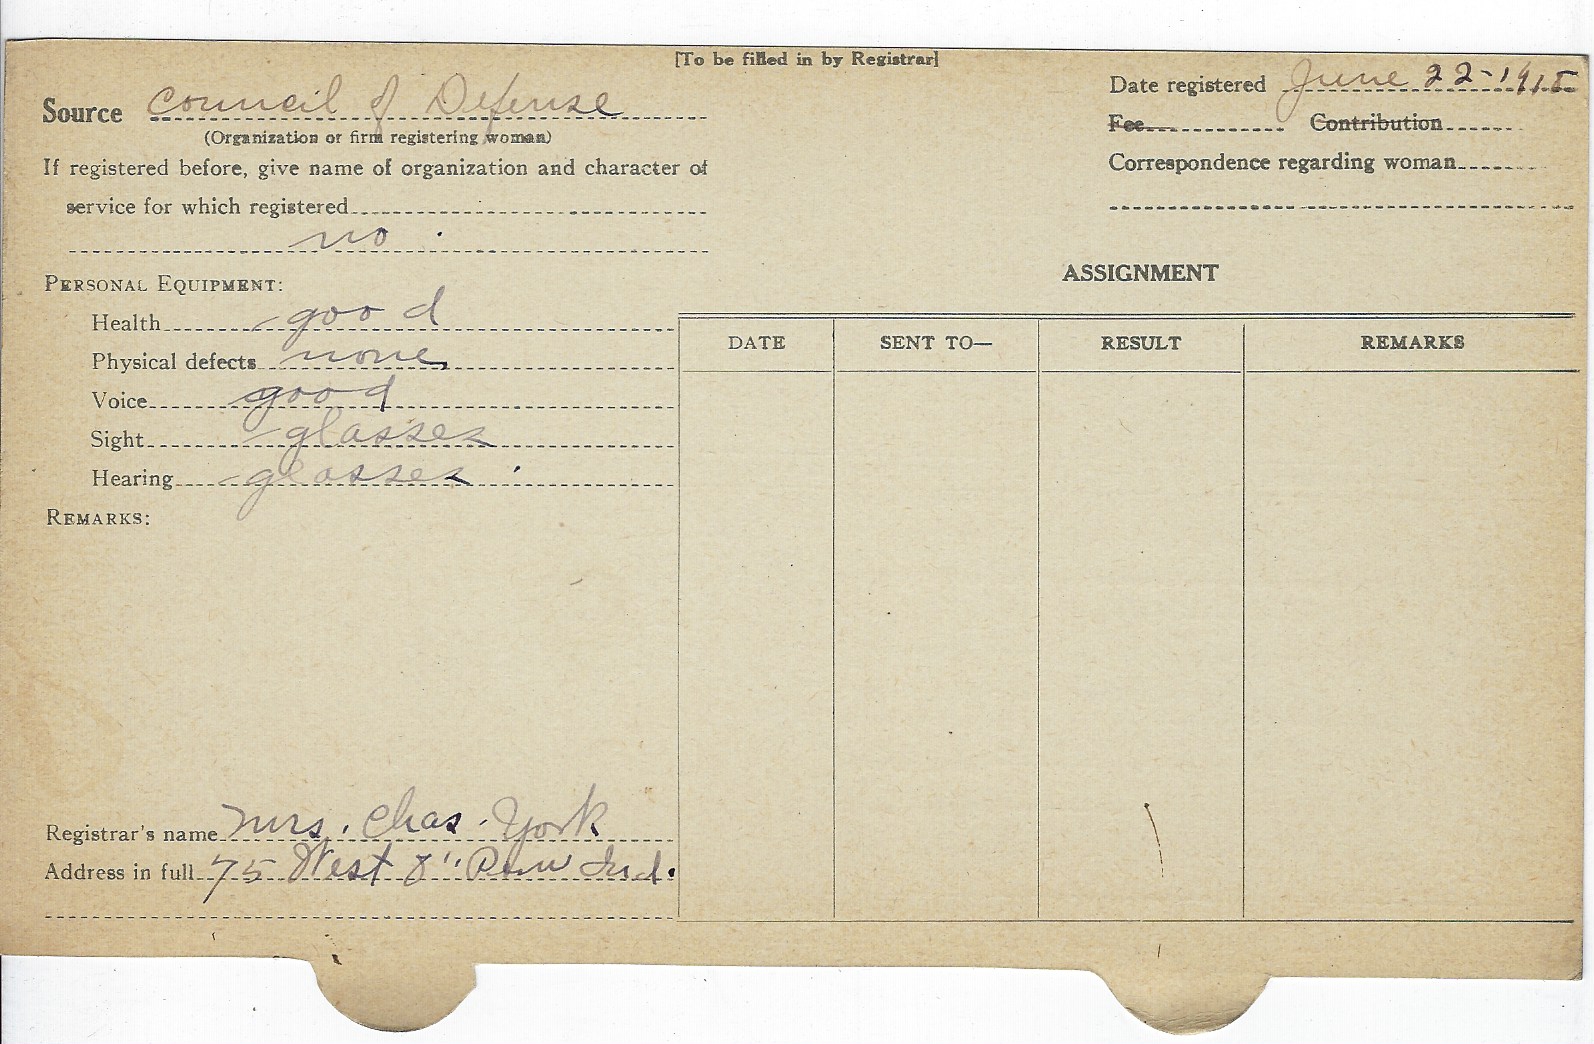 [To be filled in by Registrar]
Source Council of Defense
(Organization or firm registering woman)
If registered before, give name of organization and character of
service for which registered
no
PERSONAL EQUIPMENT:
Health good
Physical defects none
Voice good
Sight glasses
Hearing glasses
REMARKS:
Registrar's name Mrs. Chas. York
Address in full 75 West 8" Peru Ind.
Date registered June 22-1918
Fee Contribution
Correspondence regarding woman
ASSIGNMENT
DATE SENT TO— RESULT REMARKS